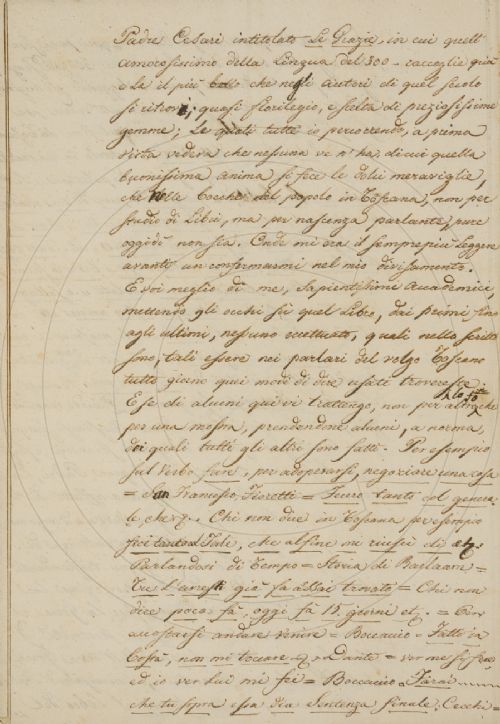 Padre Cesari intitolato Le Grazie, in cui quell'
amorosissimo della Lingua del 300 - raccoglie qua
e là il più bello che negli autori di quel secolo
si ritrovi, quasi florilegio, e scelta di preziosissime
gemme; Le quali tutte io percorrendo, a prima
vista vedeva che nessuna ve n'ha, di cui quella
buonissima anima si fece le dolci meraviglie,
che nelle bocche del popolo in Toscana, non per
studio di Libri, ma per nascenza parlante, pure
oggidì non sia. Onde mi era il sempre più Leggere
avanti un confermarmi nel mio divisamento.
E voi meglio di me, Sapientissimi Accademici,
mettendo gli occhi su quel Libro, dai primi fino
agli ultimi, nessuno eccettuato, quali nello scritto
sono, tali essere nei parlari del volgo Toscano
tutto giorno quei modi di dire usati trovereste.
E se di alcuni qui vi trattengo, non per altro che
per una mostra, prendendone alcuni, a norma
dei quali tutti gli altri sono fatti. Per esempio
sul verbo fare, per adoperarsi, negoziare una cosa
= San Francesco, Fioretti = Fecero tanti col genera
le, che &. Chi non dice in Toscana per esempio
feci tanto col Tale, che alfine mi riuscì di etc.
Parlandosi di Tempo = Storia di Barlaam =
Tre l'arresti già fa assai trovato = Chi non
dice poco fà, oggi fà 15 giorni etc. = Per
accostarsi andare venire = Boccaccio = Fatti in
Costà, non mi toccare = Dante = ver me si fece
ed io ver lui mi fei = Boccaccio = Farai
che tu sopra essa dia Sentenza finale; Cecchi =